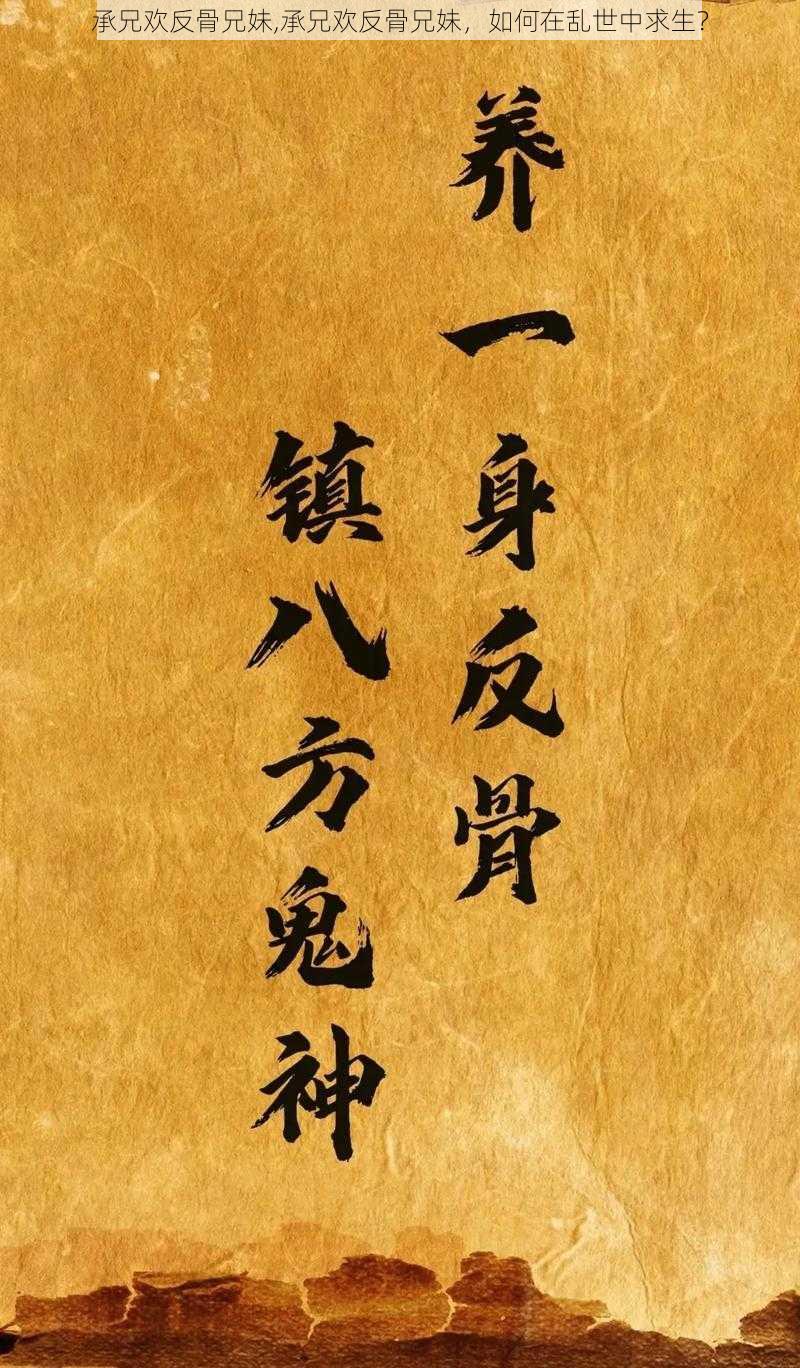 承兄欢反骨兄妹,承兄欢反骨兄妹，如何在乱世中求生？
养一身反骨
镇八方鬼神